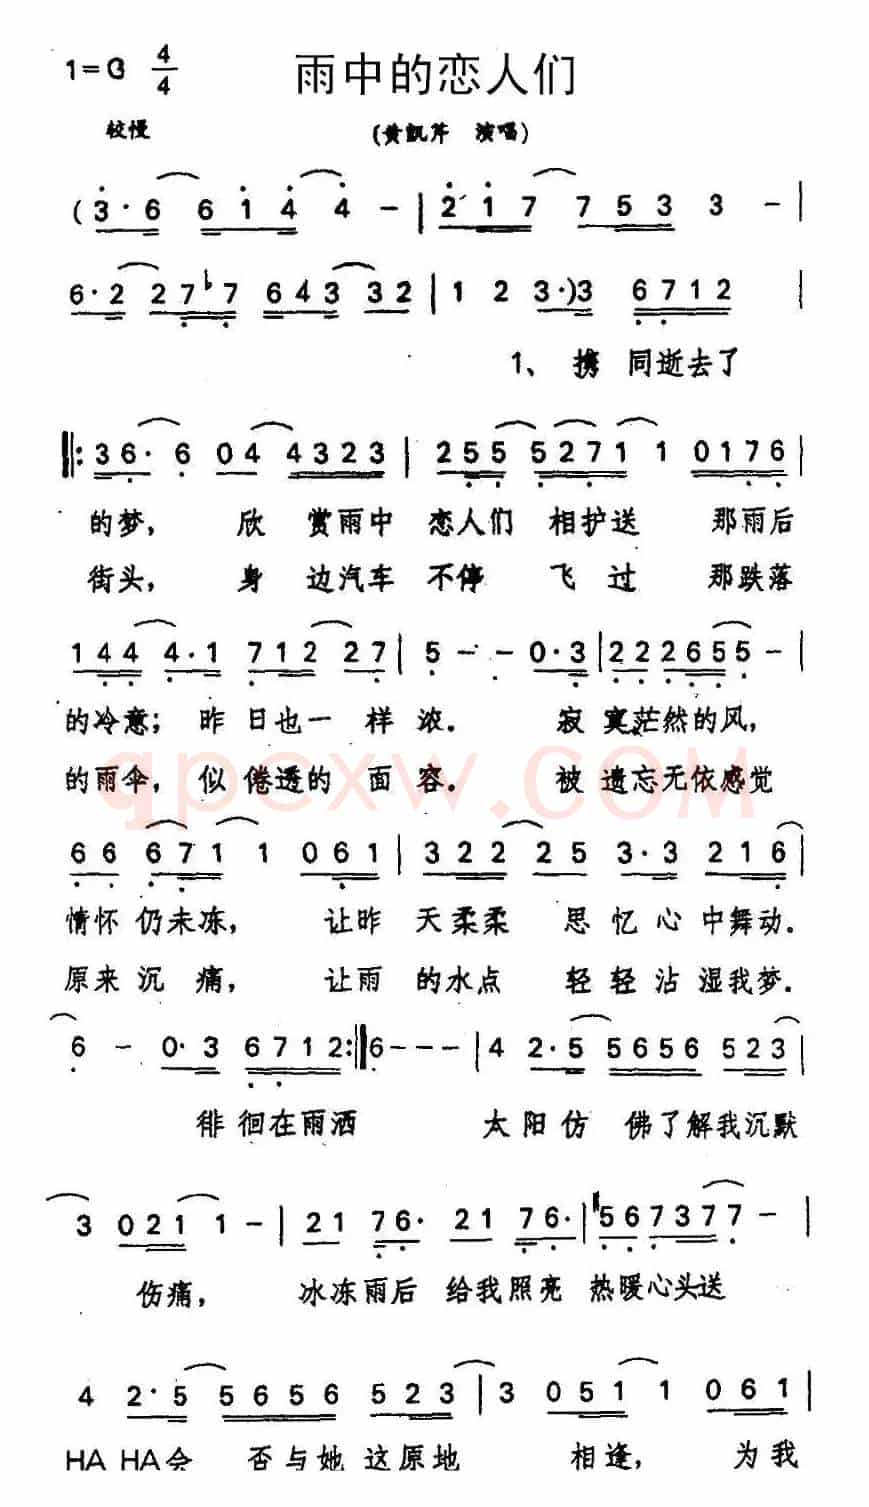 1=G 4/4 雨中的恋人们
较慢 (黄凯芹 演唱)
(3·6 614 4 - | 217 753 3 - |
6·2 27♭7 643 32 | 1 2 3·)3 6712 |
1、携 同逝去了
‖:36· 6 04 4323 | 255 5271 1 0176 |
的梦, 欣 赏雨中 恋人们 相护送 那雨后
街头, 身 边汽车 不停 飞过 那跌落
144 4·1 712 27 | 5 - - 0·3 | 222655 - |
的冷意; 昨 日也一 样 浓. 寂 寞茫然的风,
的雨伞, 似 倦透的 面 容. 被 遗忘无依感觉
qpcxw.COM
66 671 1 061 | 322 25 3·3 216 |
情怀 仍未冻, 让昨 天柔柔 思 忆 心 中舞动.
原来 沉 痛, 让雨 的水点 轻 轻 沾 湿我梦.
6 - 0·3 6712:‖6--- | 4 2·5 5656 523 |
徘 徊在雨洒 太 阳仿 佛了解我沉默
3 021 1 - | 21 76· 21 76· | 567377 - |
伤痛, 冰冻雨后 给我照亮 热暖心头送
4 2·5 5656 523 | 3 051 1 061 |
HA HA会 否与她 这原地 相逢, 为我